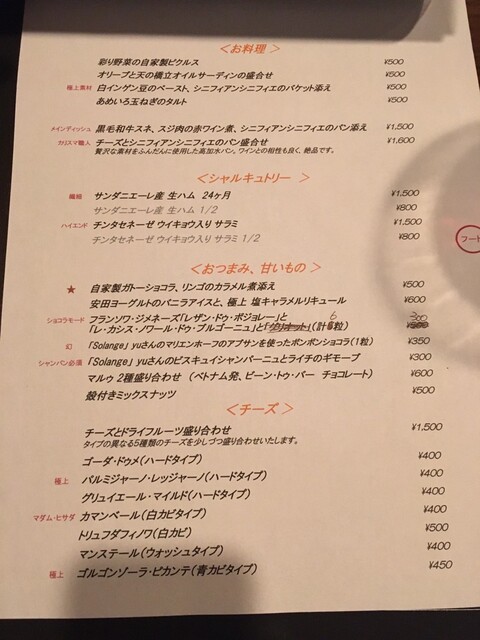 ＜お料理＞
彩り野菜の自家製ピクルス ¥500
オリーブと天の橋立オイルサーディンの盛合せ ¥500
極上素材 白インゲン豆のペースト、シニフィアンシニフィエのバケット添え ¥500
あめいろ玉ねぎのタルト ¥500
メインディッシュ 黒毛和牛スネ、スジ肉の赤ワイン煮、シニフィアンシニフィエのパン添え ¥1,500
カリスマ職人 チーズとシニフィアンシニフィエのパン盛合せ ¥1,600
贅沢な素材をふんだんに使用した高加水パン。ワインとの相性も良く、絶品です。
＜シャルキュトリー＞
繊細 サンダニエーレ産 生ハム 24ヶ月 ¥1,500
サンダニエーレ産 生ハム 1/2 ¥800
ハイエンド チンタセネーゼ ウイキョウ入り サラミ ¥1,500
チンタセネーゼ ウイキョウ入り サラミ 1/2 ¥800
フード
＜おつまみ、甘いもの＞
★ 自家製ガトーショコラ、リンゴのカラメル煮添え ¥500
安田ヨーグルトのバニラアイスと、極上 塩キャラメルリキュール ¥600
ショコラモード フランソワ・ジメネーズ「レザン・ドゥ・ボジョレー」と
「レ・カシス・ノワール・ドゥ・ブルゴーニュ」と (計6粒)
幻 「Solange」yuさんのマリエンホーフのアブサンを使ったボンボンショコラ(1粒) ¥350
シャンパン必須 「Solange」yuさんのビスキュイシャンパーニュとライチのギモーブ ¥300
マルゥ 2種盛り合わせ (ベトナム発、ビーン・トゥ・バー チョコレート) ¥600
殻付きミックスナッツ ¥500
＜チーズ＞
チーズとドライフルーツ盛り合わせ ¥1,500
タイプの異なる5種類のチーズを少しづつ盛り合わせいたします。
ゴーダ・ドゥメ(ハードタイプ) ¥400
極上 パルミジャーノ・レッジャーノ(ハードタイプ) ¥400
グリュイエール・マイルド(ハードタイプ) ¥400
マダム・ヒサダ カマンベール(白カビタイプ) ¥400
トリュフダフィノワ(白カビ) ¥500
マンステール(ウォッシュタイプ) ¥400
極上 ゴルゴンゾーラ・ピカンテ(青カビタイプ) ¥450